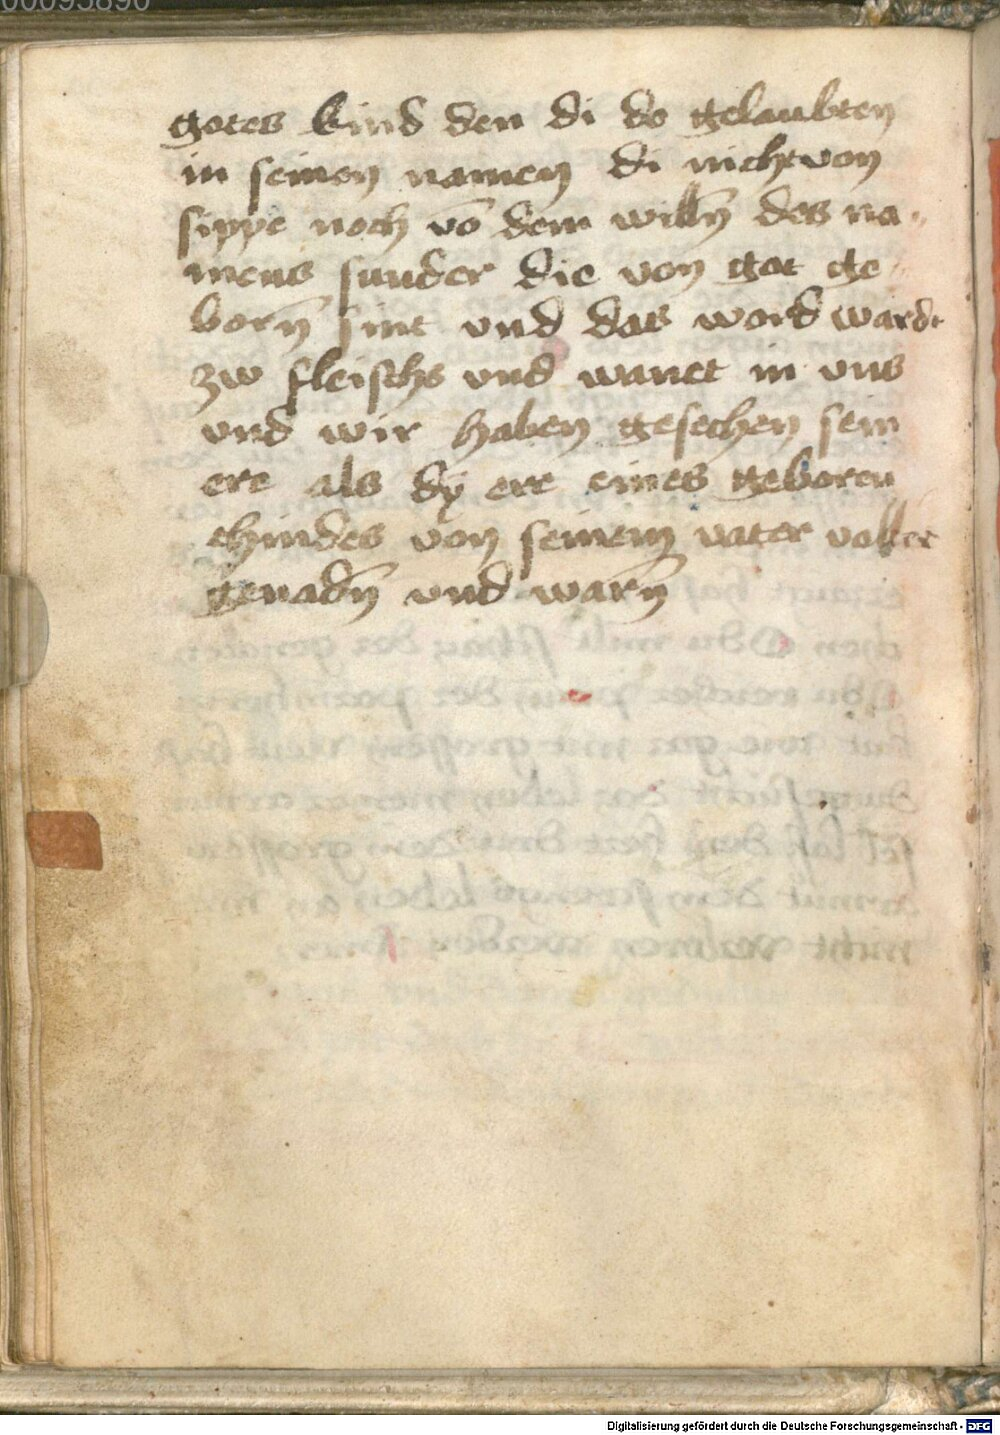 00095890
gotes kind den di do gelaubten
in seinen namen di nicht von
sippe noch vō dem willn̄ des na-
mens sunder die von got ge-
born̄ sint vnd das word wardt
zw fleischs vnd wanet in vns
vnd wir haben gesechen sein
ere als dÿ ere eines geboren
chindes von seinem vater voller
genadn̄ vnd warn̄
Digitalisierung gefördert durch die Deutsche Forschungsgemeinschaft - DFG